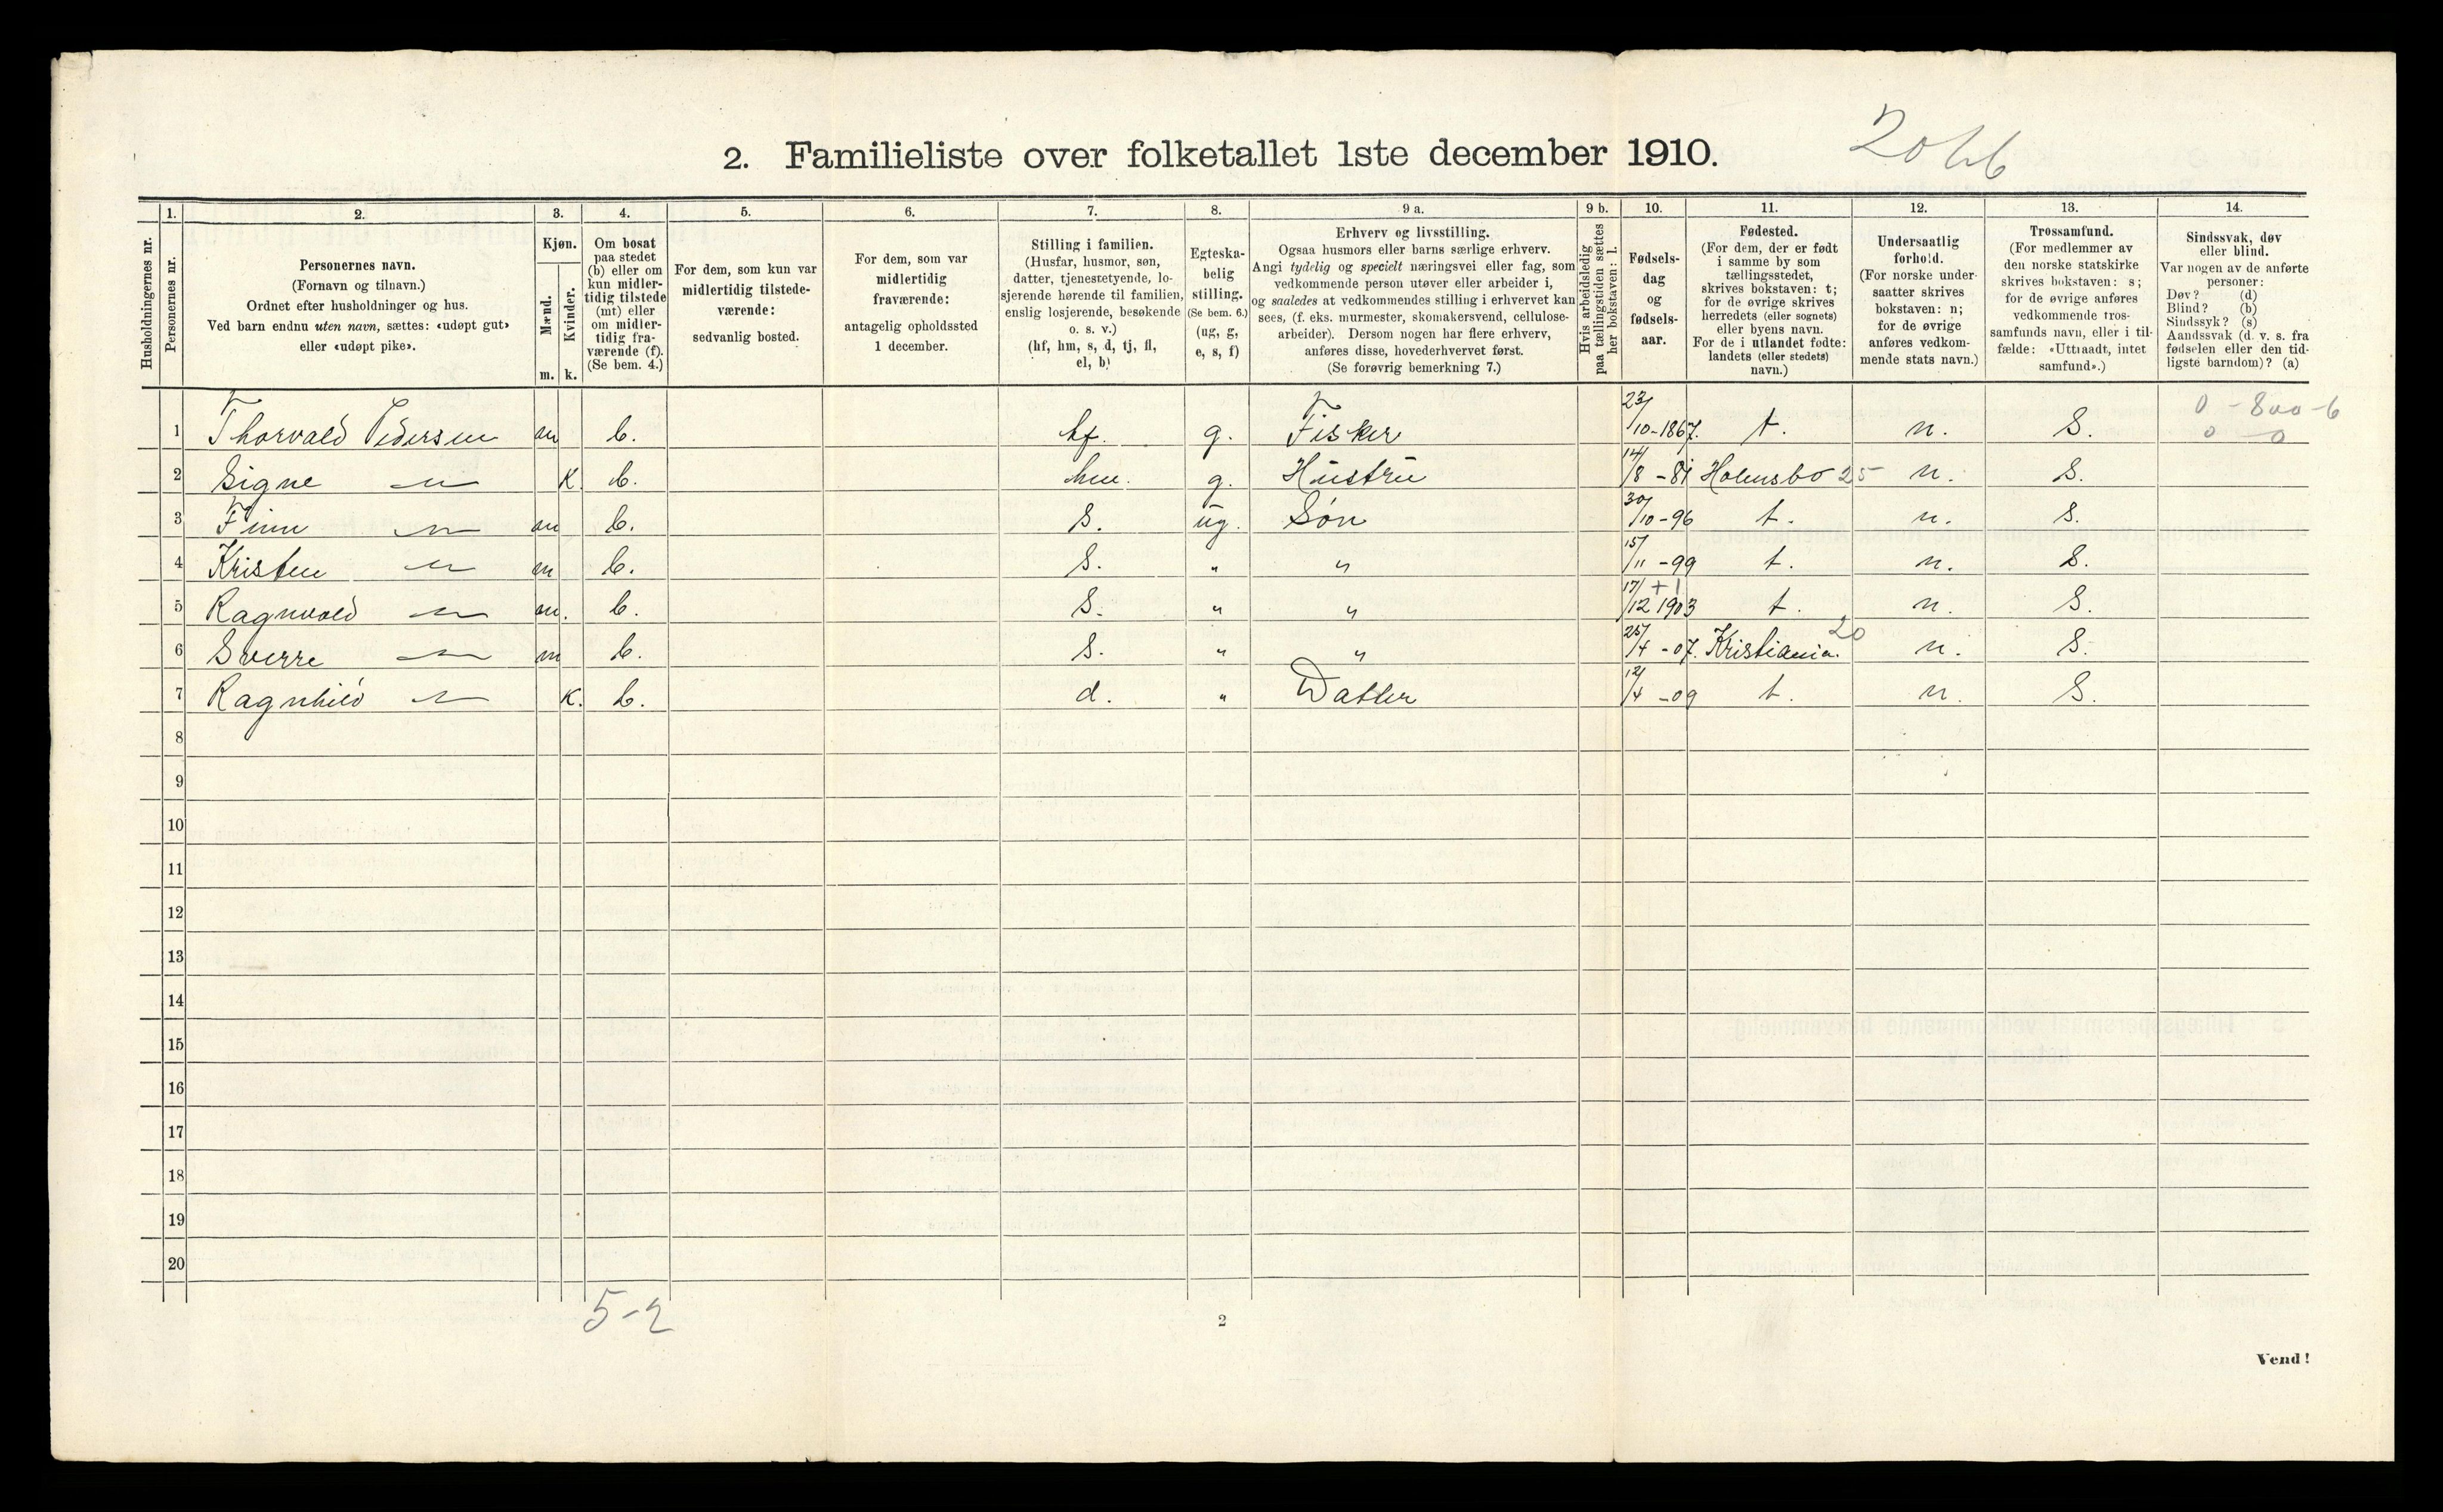 2. Familieliste over folketallet 1ste december 1910.
Husholdningernes nr.
1. 2. 3. 4. 5. 6. 7. 8. 9 a. 9 b. 10. 11. 12. 13. 14.
Personernes nr.
Personernes navn.
(Fornavn og tilnavn.)
Ordnet efter husholdninger og hus.
Ved barn endnu uten navn, sættes: «udøpt gut»
eller «udøpt pike».
Kjøn.
Mænd.
Kvinder.
m. k.
Om bosat
paa stedet
(b) eller om
kun midler-
tidig tilstede
(mt) eller
om midler-
tidig fra-
værende (f).
(Se bem. 4.)
For dem, som kun var
midlertidig tilstede-
værende:
sedvanlig bosted.
For dem, som var
midlertidig
fraværende:
antagelig opholdssted
1 december.
Stilling i familien.
(Husfar, husmor, søn,
datter, tjenestetyende, lo-
sjerende hørende til familien,
enslig losjerende, besøkende
o. s. v.)
(hf, hm, s, d, tj, fl,
el, b)
Egteska-
belig
stilling.
(Se bem. 6.)
(ug, g,
e, s, f)
Erhverv og livsstilling.
Ogsaa husmors eller barns særlige erhverv.
Angi tydelig og specielt næringsvei eller fag, som
vedkommende person utøver eller arbeider i,
og saaledes at vedkommendes stilling i erhvervet kan
sees, (f. eks. murmester, skomakersvend, cellulose-
arbeider). Dersom nogen har flere erhverv,
anføres disse, hovederhvervet først.
(Se forøvrig bemerkning 7.)
Hvis arbeidsledig
paa tællingstiden sættes
her bokstaven: l.
Fødsels-
dag
og
fødsels-
aar.
Fødested.
(For dem, der er født
i samme by som
tællingsstedet,
skrives bokstaven: t;
for de øvrige skrives
herredets (eller sognets)
eller byens navn.
For de i utlandet fødte:
landets (eller stedets)
navn.)
Undersaatlig
forhold.
(For norske under-
saatter skrives
bokstaven: n;
for de øvrige
anføres vedkom-
mende stats navn.)
Trossamfund.
(For medlemmer av
den norske statskirke
skrives bokstaven: s;
for de øvrige anføres
vedkommende tros-
samfunds navn, eller i til-
fælde: «Uttraadt, intet
samfund».)
Sindssvak, døv
eller blind.
Var nogen av de anførte
personer:
Døv? (d)
Blind? (b)
Sindssyk? (s)
Aandssvak (d. v. s. fra
fødselen eller den tid-
ligste barndom)? (a)
1 Thorvald Pedersen m b. hf. g. Fisker 23/10-1867. t. n. S. 0-800-6
0 0
2 Signe — K. b. hm. g. Hustru 14/8-81 Holmsbo 25 n. S.
3 Finn — m b. S. ug. Søn 30/10-96 t. n. S.
4 Kristen — m b. S. " " 15/11-99 t. n. S.
5 Ragnvald — m. b. S. " " 17/12 1903 +1 t. n. S.
6 Sverre — m b. S. " " 25/4-07. Kristiania. 20 n. S.
7 Ragnhild — K. b. d. " Datter 12/4-09 t. n. S.
8
9
10
11
12
13
14
15
16
17
18
19
20
5-2
2
Vend!